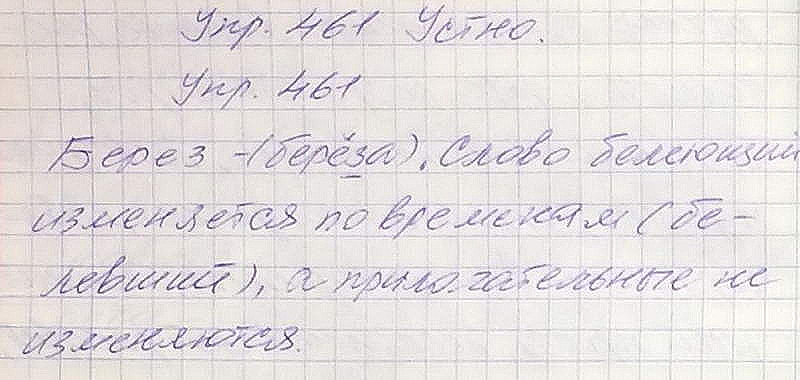 Упр. 461 Устно.
Упр. 461
Берез -(берёза). Слово белеющий
изменяется по временам (бе-
левший), а прилагательные не
изменяются.